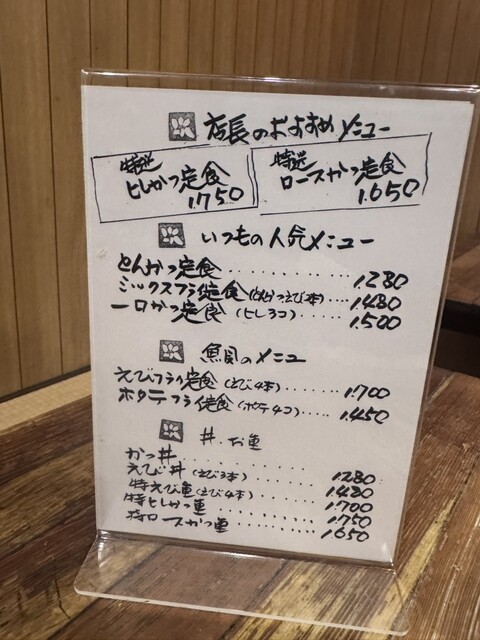 店長のおすすめメニュー
特选
ヒレかつ定食
1.750
特选
ロースかつ定食
1.650
いつもの人気メニュー
とんかつ定食.......... 1.280
ミックスフライ定食(とんかつえび1本).... 1.480
一口かつ定食(ヒレ3コ)...... 1.500
魚貝のメニュ
えびフライ定食(えび4本)...... 1.700
ホタテフライ定食(ホタテ4コ)..... 1.450
丼.お重
かつ丼.......... 1.280
えび丼(えび3本)........ 1.480
特えび重(えび4本)........ 1.700
特ヒレかつ重.......... 1.750
特ロースかつ重......... 1.650